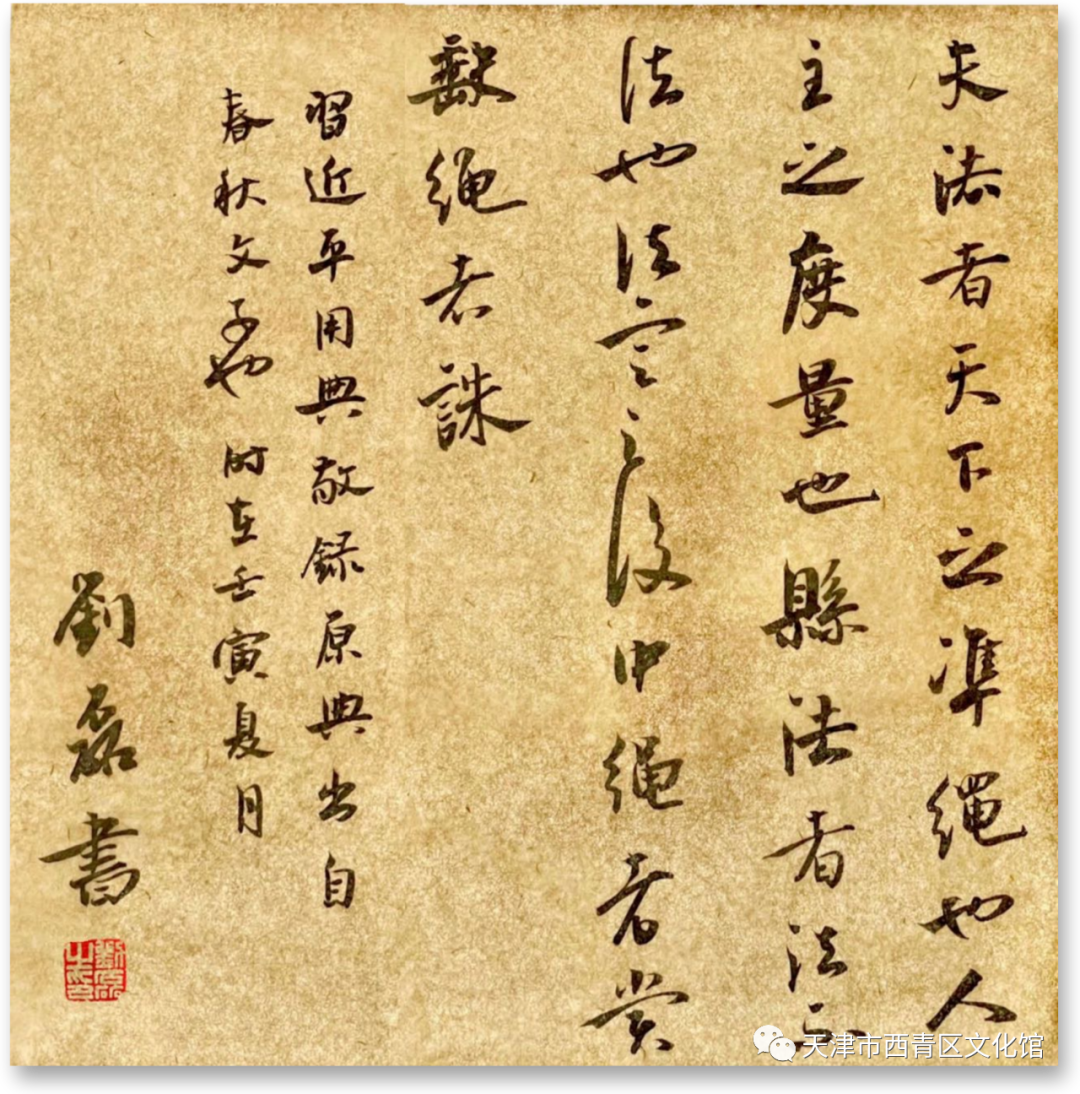 夫法者天下之準繩也人
主之度量也縣法者法不
法也法定之後中繩者賞
缺繩者誅
習近平用典敬録原典出自
春秋文子也 时在壬寅夏月
劉磊書
劉磊之印
天津市西青区文化馆